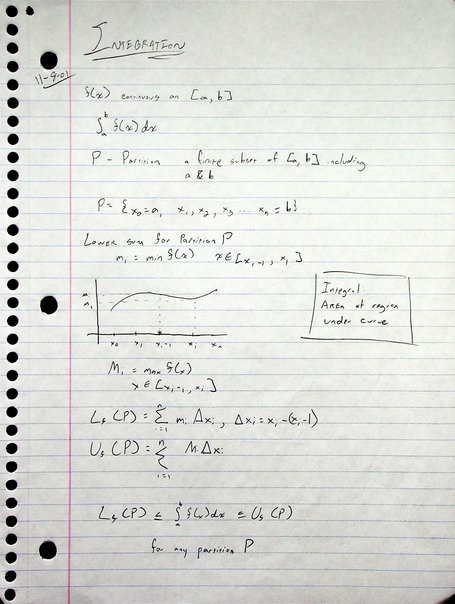 INTEGRATION
11-9-01
f(x) continuous on [a, b]
∫_a^b f(x) dx
P - Partition a finite subset of [a, b] including
a & b
P = {x₀ = a, x₁, x₂, x₃ ... xₙ = b}
LOWER sum for Partition P
mᵢ = min f(x) x ∈ [xᵢ₋₁, xᵢ]
Integral:
AREA of region
under curve
x₀ x₁ xᵢ₋₁ xᵢ xₙ
Mᵢ = max f(x)
x ∈ [xᵢ₋₁, xᵢ]
L_f (P) = Σ_{i=1}^n mᵢ Δxᵢ, Δxᵢ = xᵢ - (xᵢ-1)
U_f (P) = Σ_{i=1}^n Mᵢ Δxᵢ
L_f (P) ≤ ∫_a^b f(x) dx ≤ U_f (P)
for any partition P